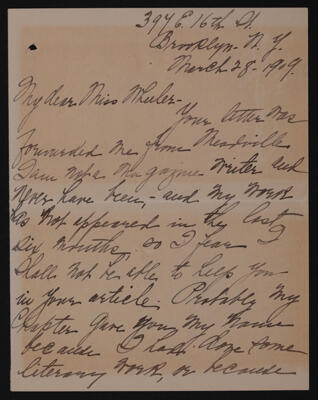 394 E. 16th St.
Brooklyn - N. Y.
March 28 - 1909.
My dear Miss Wheeler -
Your letter was
forwarded me from Meadville
I am not a magazine writer and
never have been, - and my work
has not appeared in the last
six months, so I fear I
shall not be able to help you
in your article. Probably my
Chapter gave you my name
because I had done some
literary work, or because